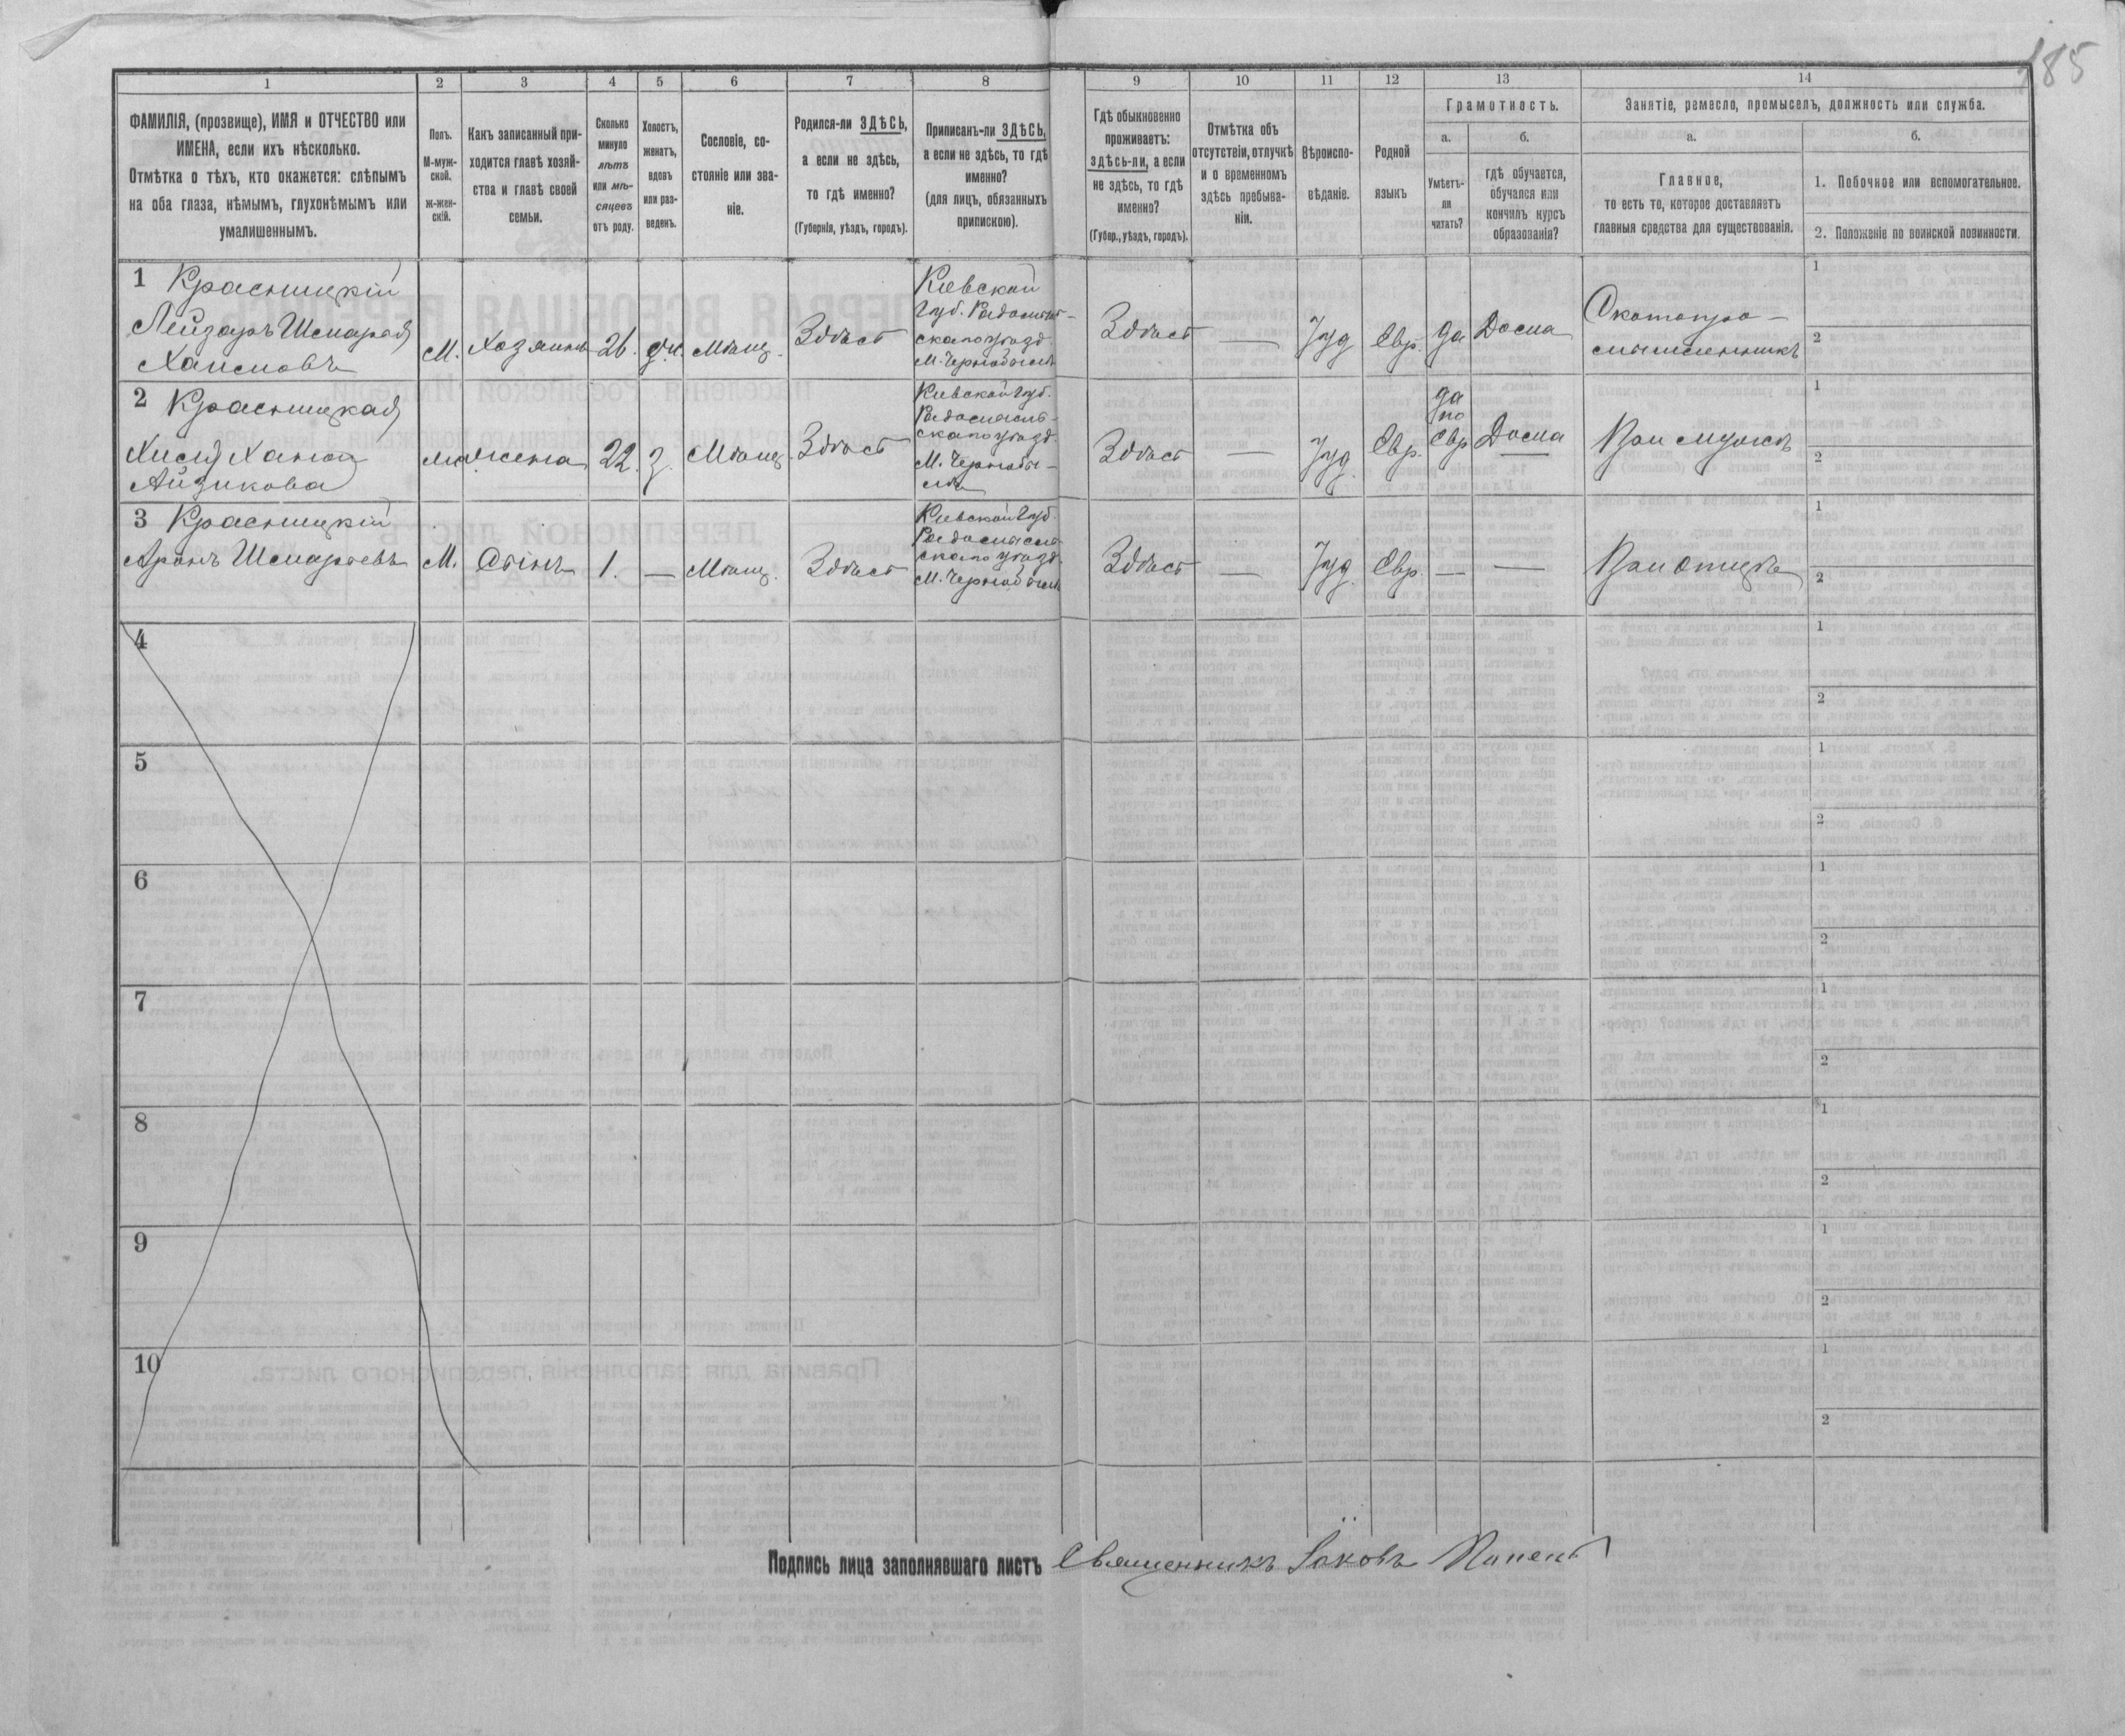 185
1 2 3 4 5 6 7 8 9 10 11 12 13 14
ФАМИЛІЯ, (прозвище), ИМЯ и ОТЧЕСТВО или
ИМЕНА, если ихъ нѣсколько.
Отмѣтка о тѣхъ, кто окажется: слѣпымъ
на оба глаза, нѣмымъ, глухонѣмымъ или
умалишеннымъ.
Полъ.
М-муж-
ской.
ж-жен-
скій.
Какъ записанный при-
ходится главѣ хозяй-
ства и главѣ своей
семьи.
Сколько
минуло
лѣтъ
или мѣ-
сяцевъ
отъ роду.
Холостъ,
женатъ,
вдовъ
или раз-
веденъ.
Сословіе, со-
стояніе или зва-
ніе.
Родился-ли ЗДѢСЬ,
а если не здѣсь,
то гдѣ именно?
(Губернія, уѣздъ, городъ).
Приписанъ-ли ЗДѢСЬ,
а если не здѣсь, то гдѣ
именно?
(для лицъ, обязанныхъ
припискою).
Гдѣ обыкновенно
проживаетъ:
здѣсь-ли, а если
не здѣсь, то гдѣ
именно?
(Губер., уѣздъ, городъ).
Отмѣтка объ
отсутствіи, отлучкѣ
и о временномъ
здѣсь пребыва-
ніи.
Вѣроиспо-
вѣданіе.
Родной
языкъ
Грамотность.
а.
Умѣетъ-
ли
читать?
б.
гдѣ обучается,
обучался или
кончилъ курсъ
образованія?
Занятіе, ремесло, промыселъ, должность или служба.
а.
Главное,
то есть то, которое доставляетъ
главныя средства для существованія.
б.
1. Побочное или вспомогательное.
2. Положеніе по воинской повинности.
1 Красницкій
Лейзаръ Шмарья
Хаимовъ
М.
Хозяинъ
26.
ж.
Мѣщ.
Здѣсь
Кіевской
Губ. Радомысль-
скаго уѣзд.
М. Чернобыль
Здѣсь
—
Іуд
Евр.
да
Дома
Скотопро-
мышленникъ
1
2
2 Красницкая
Хися Ханна
Айзикова
жена
22.
з.
Мѣщ.
Здѣсь
Кіевской Губ.
Радомысль-
скаго уѣзд.
М. Чернобы-
ль
Здѣсь
—
Іуд.
Евр.
да
по
Евр
Дома
При мужѣ
1
2
3 Красницкій
Аронъ Шмарьевъ
М.
Сынъ
1.
—
Мѣщ.
Здѣсь
Кіевской Губ.
Радомысль-
скаго уѣзд.
М. Чернобыль
Здѣсь
—
Іуд.
Евр.
—
—
При отцѣ
1
2
4
1
2
5
1
2
6
1
2
7
1
2
8
1
2
9
1
2
10
1
2
Подпись лица заполнявшаго листъ Священникъ Іаковъ